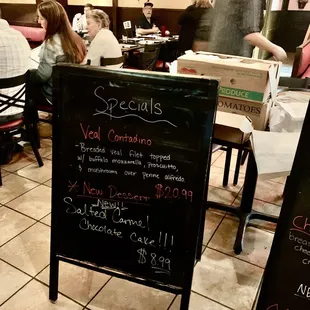 Specials
Veal Contadino
- Breaded veal filet topped
w/ buffalo mozzarella, prosciutto
& mushrooms over penne alfredo
$20.99
* New Dessert
New!
Salted Carmel
Chocolate Cake!!!
$8.99
PRODUCE
TOMATOES
NEW